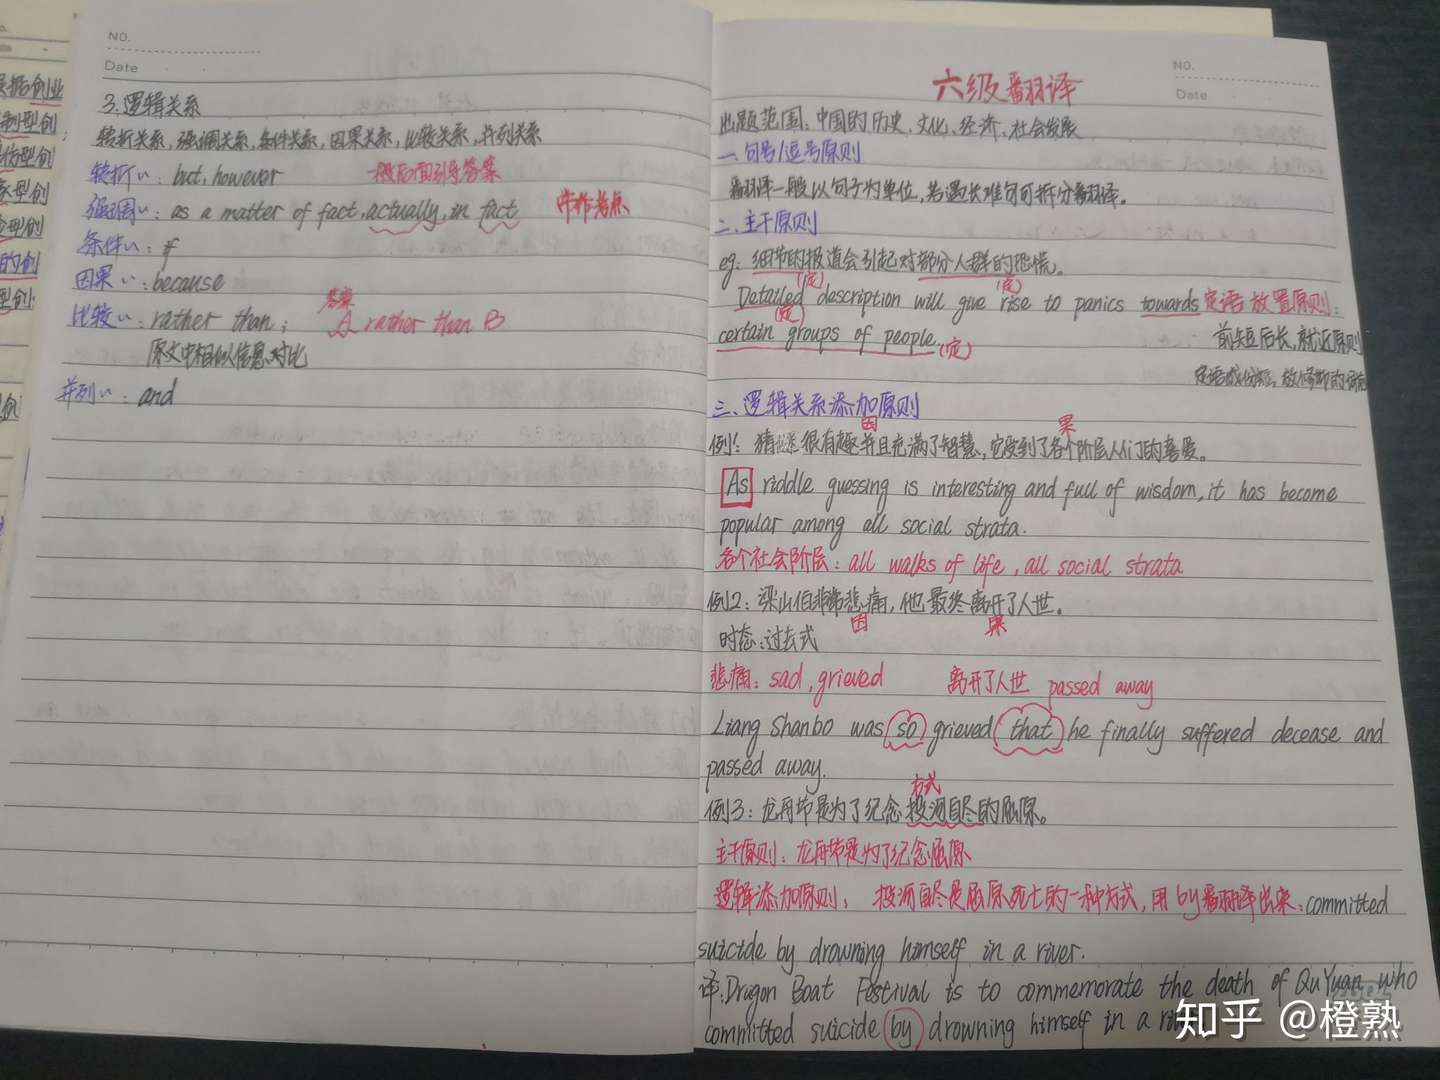 NO.
Date
3.逻辑关系
转折关系,强调关系,条件关系,因果关系,比较关系,并列关系
转折〃:but,however 一般后面引导答案
强调〃:as a matter of fact,actually,in fact 常作考点
条件〃:if
因果〃:because
答案
比较〃:rather than; A rather than B
原文中相似信息对比
并列〃:and
NO.
Date
六级翻译
出题范围:中国的历史、文化、经济、社会发展
一、句号/逗号原则
翻译一般以句子为单位,若遇长难句可拆分翻译。
二、主干原则
eg:细节的报道会引起对部分人群的恐慌。
(定) (定)
Detailed description will give rise to panics towards 定语放置原则:
(定)
certain groups of people. (定) 前短后长,就近原则
三、逻辑关系添加原则
因 果
例1:猜谜很有趣并且充满了智慧,它受到了各个阶层人们的喜爱。
As riddle guessing is interesting and full of wisdom,it has become
popular among all social strata.
各个社会阶层:all walks of life,all social strata
例2:梁山伯非常悲痛,他最终离开了人世。
因 果
时态:过去式
悲痛:sad,grieved 离开了人世 passed away
Liang Shanbo was so grieved that he finally suffered decease and
passed away.
方式
例3:龙舟节是为了纪念投河自尽的屈原。
主干原则:龙舟节是为了纪念屈原
逻辑添加原则:投河自尽是屈原死亡的一种方式,用by翻译出来:committed
suicide by drowning himself in a river.
译:Dragon Boat Festival is to commemorate the death of Qu Yuan who
committed suicide by drowning himself in a river.
知乎 @橙熟